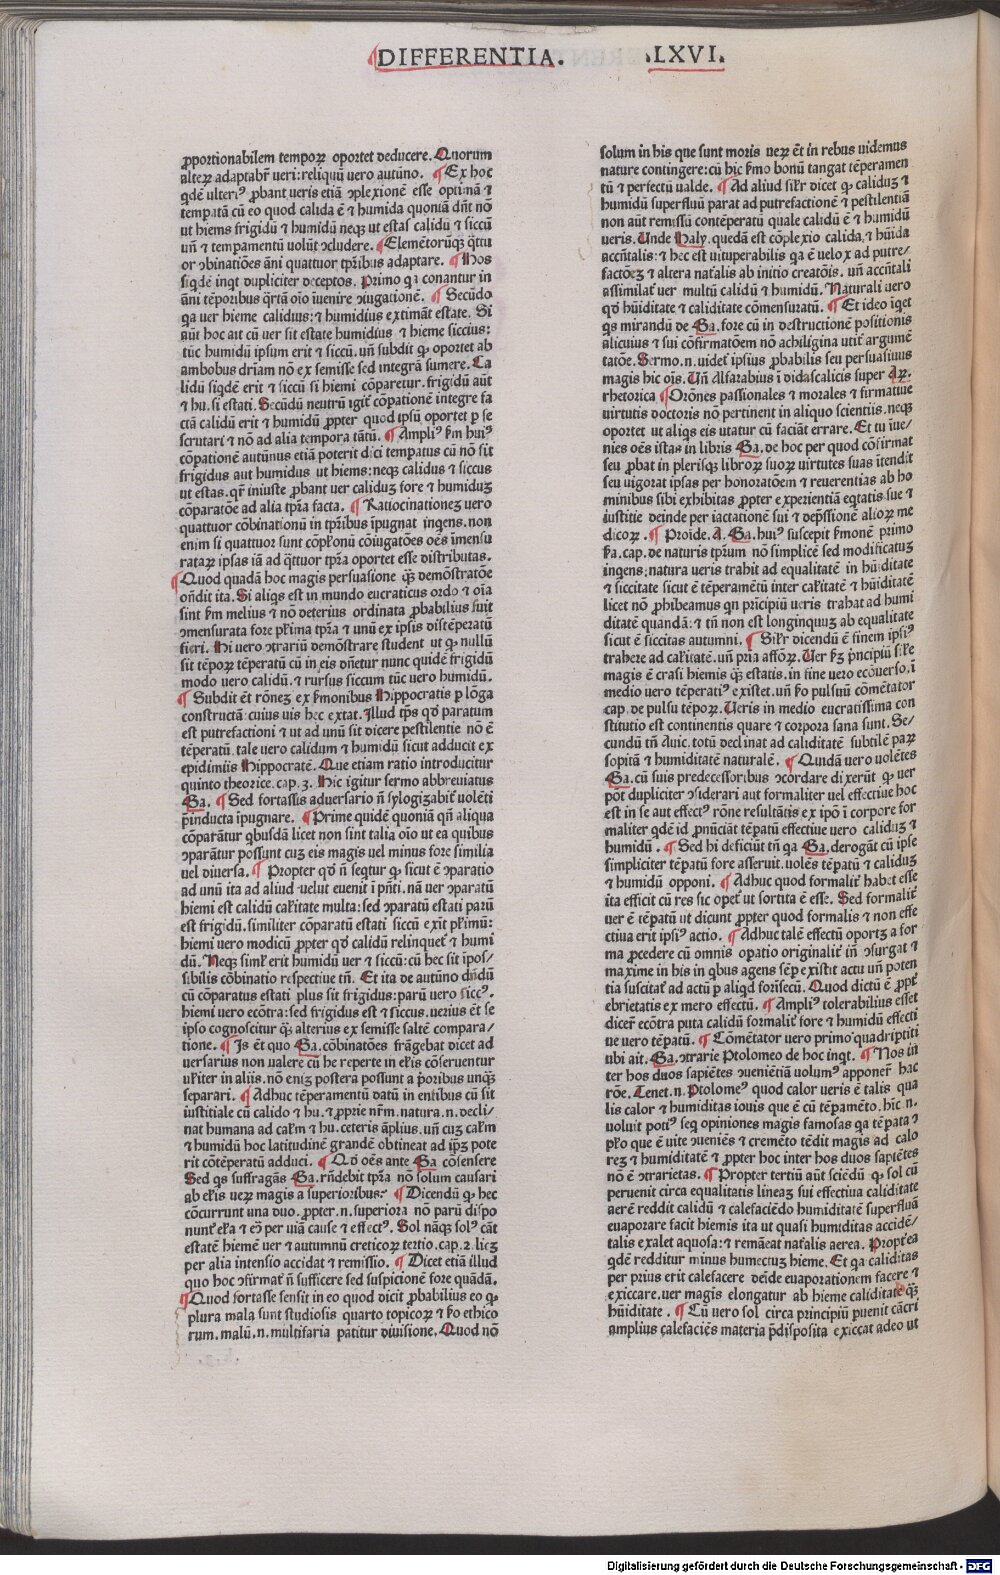 DIFFERENTIA. .LXVI.
ꝓportionabilem tempoꝝ oportet deducere. Quorum
alteꝝ adaptabr̄ veri: reliquū vero autūno. ¶ Ex hoc
qdē ulteriꝰ ꝓbant veris etiā ꝯplexionē esse optimā ⁊
temꝑatā cū eo quod calida ē ⁊ humida quoniā dn̄t nō
ut hiems frigidū ⁊ humidū neqꝫ ut estas calidū ⁊ siccū
un̄ ⁊ temꝑamentū volūt ꝯcludere. ¶ Elemētorūqꝫ q̄ttu
or ꝯbinatiōes āni quattuor tꝑribus adaptare. ¶ Hos
siqdē inqt dupliciter deceptos. Primo qa conantur in
āni tēporibus q̄rtā oīo īuenire ꝯiugationē. ¶ Secūdo
qa uer hieme calidius: ⁊ humidius extimāt estate. Si
aūt hoc ait cū ver sit estate humidius ⁊ hieme siccius:
tūc humidū ipsum erit ⁊ siccū. un̄ subdit ꝙ oportet ab
ambobus dr̄iam nō ex semisse sed integrā sumere. Ca
lidū siqdē erit ⁊ siccū si hiemi cōparetur. frigidū aūt
⁊ hu. si estati. Secūdū neutrū igit̄ cōpationē integre fa
ctā calidū erit ⁊ humidū ꝓpter quod ipsū oportet ꝑ se
scrutari ⁊ nō ad alia tempora tātū. ¶ Ampliꝰ ẜm huiꝰ
cōpationē autūnus etiā poterit dici tempatus cū nō sit
frigidus aut humidus ut hiems: neqꝫ calidus ⁊ siccus
ut estas. qr̄ iniuste ꝓbant ver caliduꝫ fore ⁊ humiduꝫ
cōparatōe ad alia tꝑra facta. ¶ Ratiocinationeꝫ vero
quattuor cōbinationū in tꝑribus īpugnat inqens. non
enim si quattuor sunt cōpl̄onū cōiugatōes oēs īmensu
rataꝝ ipsas iā ad q̄ttuor tꝑra oportet esse distributas.
¶ Quod quadā hoc magis persuasione qꝫ demōstratōe
on̄dit ita. Si aliqs est in mundo eucraticus ordo ⁊ oīa
sint ẜm melius ⁊ nō deterius ordinata ꝓbabilius fuit
ꝯmensurata fore pl̄ima tꝑra ⁊ unū ex ipsis distēperatū
fieri. Hi vero ꝯtrariū demōstrare student ut ꝙ nullū
sit tēpoꝝ tēperatū cū in eis dn̄etur nunc quidē frigidū
modo vero calidū. ⁊ rursus siccum tūc vero humidū.
¶ Subdit ēt rōneꝫ ex ẜmonibus Hippocratis ꝑ lōga
constructā: cuius vis hec extat. Illud tp̄s qd̄ paratum
est putrefactioni ⁊ ut ad unū sit dicere pestilentie nō ē
tēperatū. tale vero calidum ⁊ humidū sicut adducit ex
epidimiis Hippocratē. Que etiam ratio introducitur
quinto theorice. cap. 3. Hic igitur sermo abbreuiatus
Ga. ¶ Sed fortassis aduersario n̄ sylogizabit̄ volēti
p̄inducta īpugnare. ¶ Prime quidē quoniā qn̄ aliqua
cōparātur qbusdā licet non sint talia oīo ut ea quibus
ꝯparātur possunt cuꝫ eis magis vel minus fore similia
vel diuersa. ¶ Propter qd̄ n̄ seqtur ꝙ sicut ē ꝯparatio
ad unū ita ad aliud velut euenit ī pn̄ti. nā ver ꝯparatū
hiemi est calidū cal̄itate multa: sed ꝯparatū estati parū
est frigidū. similiter cōparatū estati siccū exīt pl̄imū:
hiemi vero modicū ꝓpter qd̄ calidū relinquet̄ ⁊ humi
dū. Neqꝫ siml̄ erit humidū uer ⁊ siccū: cū hec sit īpos/
sibilis cōbinatio respectiue tn̄. Et ita de autūno dd̄ū
cū cōparatus estati plus sit frigidus: parū uero siccꝰ.
hiemi vero ecōtra: sed frigidus est ⁊ siccus. verius ēt se
ipso cognoscitur qꝫ alterius ex semisse saltē compara/
tione. ¶ Is ēt quo Ga. cōbinatōes frāgebat dicet ad
uersarius non valere cū he reperte in el̄is cōseruentur
ul̄iter in aliis. nō enīꝫ postera possunt a p̄oribus unqꝫ
separari. ¶ Adhuc tēperamentū datū in entibus cū sit
iustitiale cū calido ⁊ hu. ⁊ ꝓprie nr̄m. natura. n. decli/
nat humana ad cal̄m ⁊ hu. ceteris āplius. un̄ cuꝫ cal̄m
⁊ humidū hoc latitudinē grandē obtineat ad ip̄ꝫ pote
rit cōtēperatū adduci. ¶ Qd̄ oēs ante Ga cōsensere
Sed qs suffragās Ga. rn̄debit tꝑra nō solum causari
ab el̄is ueꝝ magis a superioribus: ¶ Dicendū ꝙ hec
cōcurrunt una duo. ꝓpter. n. superiora nō parū dispo
nunt̄ el̄a ⁊ eꝯ per uiā cause ⁊ effectꝰ. Sol nāqꝫ solꝰ cāt
estatē hiemē uer ⁊ autumnū creticoꝝ tertio. cap. 2. licꝫ
per alia intensio accidat ⁊ remissio. ¶ Dicet etiā illud
quo hoc ꝯfirmat̄ n̄ sufficere sed suspicionē fore quādā.
¶ Quod fortasse sensit in eo quod dicit ꝓbabilius eo ꝙ
plura mala sunt studiosis quarto topicoꝝ ⁊ ẜo ethico
rum. malū. n. multifaria patitur diuisione. Quod nō
solum in his que sunt moris ueꝝ ēt in rebus uidemus
nature contingere: cū hic ẜmo bonū tangat tēperamen
tū ⁊ perfectū ualde. ¶ Ad aliud silr̄ dicet ꝙ caliduꝫ ⁊
humidū superfluū parat ad putrefactionē ⁊ pestilentiā
non aūt remissū contēperatū quale calidū ē ⁊ humidū
ueris. Unde Haly. quedā est cōplexio calida, ⁊ hūida
accn̄talis: ⁊ hec est uituperabilis qa ē velox ad putre/
factōeꝫ ⁊ altera nat̄alis ab initio creatōis. un̄ accn̄tali
assimilat̄ uer multū calidū ⁊ humidū. Naturali uero
qd̄ hūiditate ⁊ caliditate cōmensuratū. ¶ Et ideo īqet
qs mirandū de Ga. fore cū in destructionē positionis
alicuius ⁊ sui cōfirmatōem nō achiligina utit̄ argumē
tatōe. Sermo. n. uidet̄ ipsius ꝓbabilis seu persuasiuus
magis hic oīs. Un̄ Alfarabius ī didascalicis super Aꝝ.
rhetorica ¶ Orōnes passionales ⁊ morales ⁊ firmatiue
virtutis doctoris nō pertinent in aliquo scientiis. neqꝫ
oportet ut aliqs eis utatur cū faciāt errare. Et tu īue/
nies oēs istas in libris Ga. de hoc per quod cōfirmat
seu ꝓbat in plerisqꝫ libroꝝ suoꝝ virtutes suas ītendit
seu uigorat ipsas per honoratōem ⁊ reuerentias ab ho
minibus sibi exhibitas ꝓpter experientiā eqtatis sue ⁊
iustitie deinde per iactationē sui ⁊ dep̄ssionē alioꝝ me
dicoꝝ. ¶ Proide. A. Ga. huiꝰ suscepit ẜmonē primo
ẜa. cap. de naturis tꝑrum nō simplicē sed modificatuꝫ
inqens; natura ueris trahit ad equalitatē in hūiditate
⁊ siccitate sicut ē tēperamētū inter cal̄itatē ⁊ hūiditatē
licet nō ꝓhibeamus qn pn̄cipiū ueris trahat ad humi
ditatē quandā: ⁊ tn̄ non est longinquuꝫ ab equalitate
sicut ē siccitas autumni. ¶ Silr̄ dicendū ē finem ipsiꝰ
trahere ad cal̄itatē. un̄ pria affōꝝ. Uer ẜꝫ p̄ncipiū sile
magis ē crasi hiemis qꝫ estatis. in fine vero ecōuerso. ī
medio uero tēperatiꝰ existet. un̄ ẜo pulsuū cōmētator
cap. de pulsu tēpoꝝ. Ueris in medio eucratissima con
stitutio est continentis quare ⁊ corpora sana sunt. Se/
cundū tn̄ Auic. totū declinat ad caliditatē subtilē paꝝ
sopitā ⁊ humiditatē naturalē. ¶ Quidā vero uolētes
Ga. cū suis predecessoribus ꝯcordare dixerūt ꝙ ver
pōt dupliciter ꝯsiderari aut formaliter vel effectiue hoc
est in se aut effectꝰ rōne resultātis ex ip̄o ī corpore for
maliter qdē id ꝓnūciāt tēpatū effectiue vero caliduꝫ ⁊
humidū. ¶ Sed hi deficiūt tn̄ qa Ga. derogāt cū ipse
simpliciter tēpatū fore asseruit. uolēs tēpatū ⁊ caliduꝫ
⁊ humidū opponi. ¶ Adhuc quod formalit̄ habet esse
ita efficit cū res sic opet̄ ut sortita ē esse. Sed formalit̄
uer ē tēpatū ut dicunt ꝓpter quod formalis ⁊ non effe
ctiua erit ipsiꝰ actio. ¶ Adhuc talē effectū oportꝫ a for
ma ꝓcedere cū omnis opatio originalit̄ in ꝯsurgat ⁊
maxime in his in qbus agens sēp existit actu un̄ poten
tia suscitat̄ ad actū ꝑ aliqd forīsecū. Quod dictū ē ꝓpt̄
ebrietatis ex mero effectū. ¶ Ampliꝰ tolerabilius esset
dicer̄ ecōtra puta calidū formalit̄ fore ⁊ humidū effecti
ue vero tēpatū. ¶ Cōmētator vero primo quadriptiti
ubi ait. Ga. ꝯtrarie Ptolomeo de hoc inqt. ¶ Nos in
ter hos duos sapiētes ꝯueniētiā uolumꝰ apponer̄ hac
rōe. Tenet. n. Ptolomeꝰ quod calor veris ē talis qua
lis calor ⁊ humiditas iouis que ē cū tēpamēto. hic. n.
uoluit potiꝰ seq opiniones magis famosas qa tēpata ꝯ
pl̄o que ē uite ꝯueniēs ⁊ cremēto tēdit magis ad calo
reꝫ ⁊ humiditatē ⁊ ꝓpter hoc inter hos duos sapiētes
nō ē ꝯtrarietas. ¶ Propter tertiū aūt sciēdū ꝙ sol cū
peruenit circa equalitatis lineaꝫ sui effectiua caliditate
aerē reddit calidū ⁊ calefaciēdo humiditatē superfluā
euaporare facit hiemis ita ut quasi humiditas accidē/
talis exalet aquosa: ⁊ remāeat nat̄alis aerea. Propt̄ea
qdē redditur minus humectuꝫ hieme. Et qa caliditas
per prius erit calefacere deīde euaporationem facere ⁊
exiccare. uer magis elongatur ab hieme caliditate qꝫ
hūiditate. ¶ Cū vero sol circa principiū ꝑuenit cācri
amplius calefaciēs materia p̄disposita exiccat adeo ut
Digitalisierung gefördert durch die Deutsche Forschungsgemeinschaft - DFG